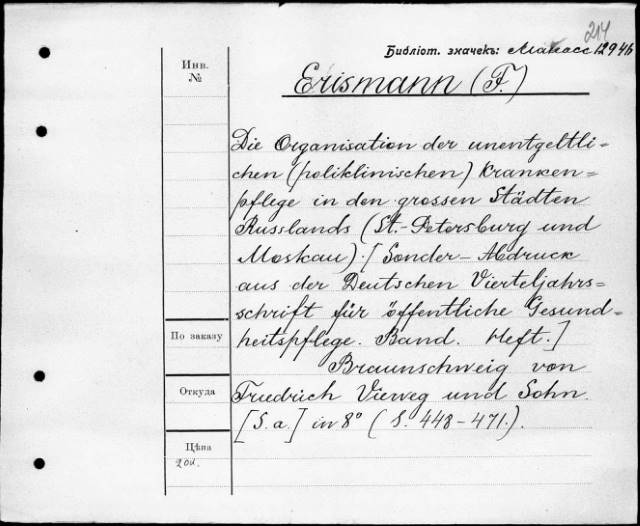 214
Библіот. значекъ: Манасс 12946
Инв.
№
Erismann (F.)
Die Organisation der unentgeltli=
chen (poliklinischen) Kranken=
pflege in den grossen Städten
Russlands (St.-Petersburg und
Moskau). [Sonder-Abdruck
aus der Deutschen Vierteljahrs=
schrift für öffentliche Gesund=
heitspflege. Band. Heft.]
Braunschweig von
Friedrich Vieweg und Sohn.
[S. a.] in 8° (S. 448-471.).
По заказу
Откуда
Цѣна